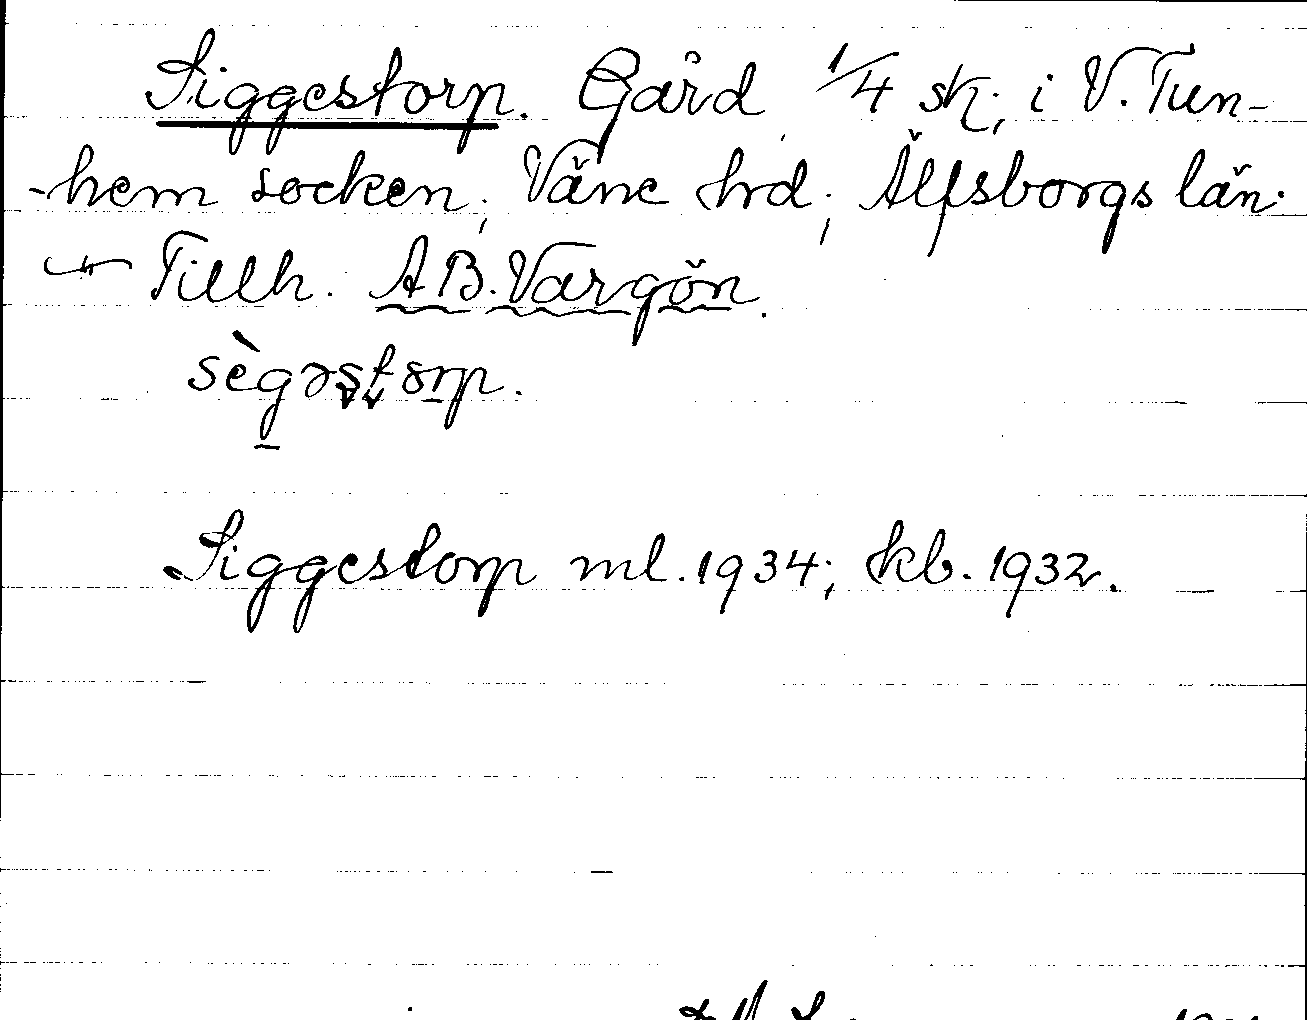 Siggestorp. Gård 1/4 sk; i V. Tun-
-hem socken; Väne hrd; Älfsborgs län.
Tillh. AB. Vargön.
sègəstorp.
Siggestorp ml. 1934; kb. 1932.